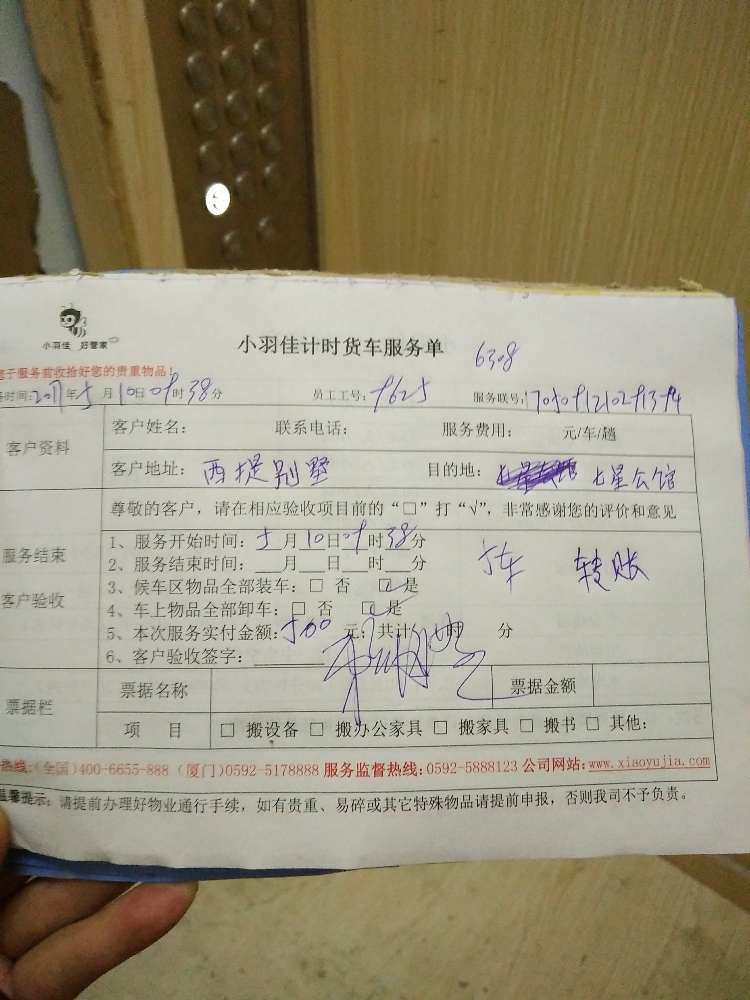 小羽佳 好管家
小羽佳计时货车服务单 6308
于服务前收拾好您的贵重物品!
时间:2017年5月10日09时38分 员工工号:9625 服务联号:
客户资料
客户姓名: 联系电话: 服务费用: 元/车/趟
客户地址: 西堤别墅 目的地: 七星公馆
尊敬的客户,请在相应验收项目前的“□”打“√”,非常感谢您的评价和意见
服务结束
客户验收
1、服务开始时间:5月10日09时38分
2、服务结束时间:___月___日___时___分
3、候车区物品全部装车:□ 否 □是
4、车上物品全部卸车:□ 否 □是
5、本次服务实付金额:500元;共计 时 分
6、客户验收签字:
车 转账
票据栏
票据名称 票据金额
项 目 □ 搬设备 □ 搬办公家具 □ 搬家具 □ 搬书 □ 其他:
热线:(全国)400-6655-888(厦门)0592-5178888 服务监督热线:0592-5888123 公司网站:www.xiaoyujia.com
温馨提示:请提前办理好物业通行手续,如有贵重、易碎或其它特殊物品请提前申报,否则我司不予负责。